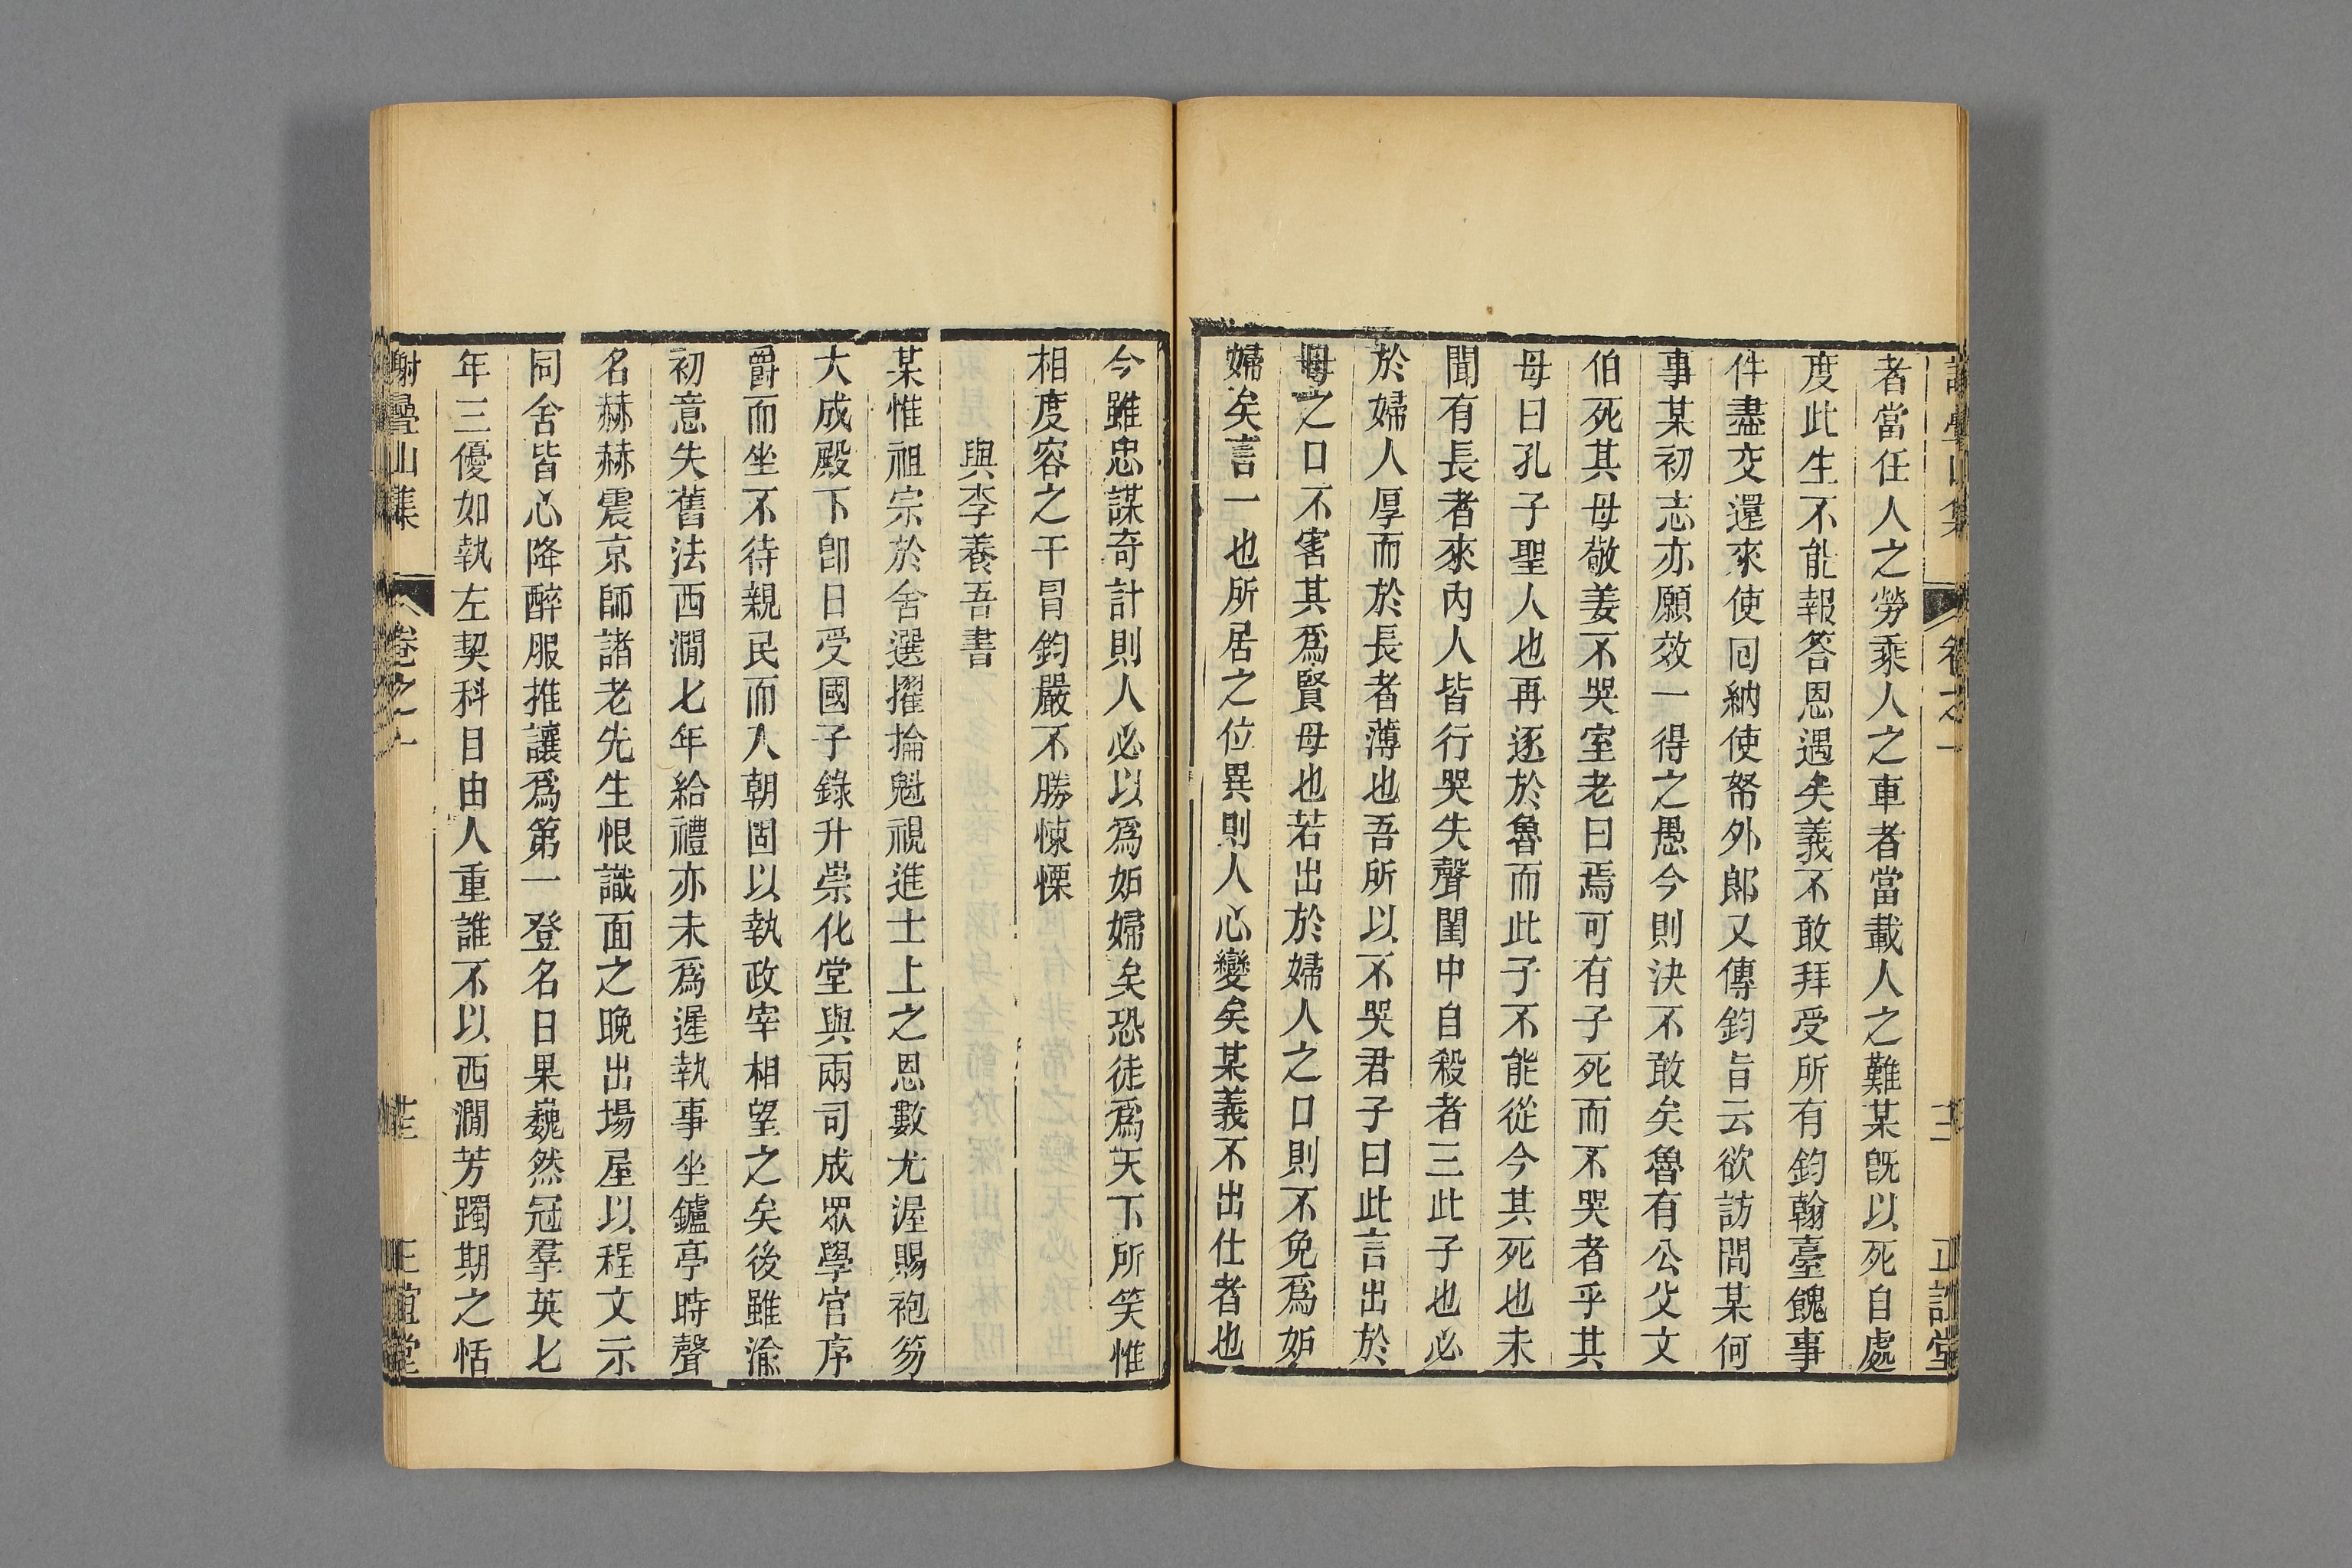 謝疊山集 卷之一 三 正誼堂
者當任人之勞乘人之車者當載人之難某旣以死自處
度此生不能報答恩遇矣義不敢拜受所有鈞翰臺餽事
件盡交還來使囘納使帑外郎又傳鈞旨云欲訪問某何
事某初志亦願效一得之愚今則決不敢矣魯有公父文
伯死其母敬姜不哭室老曰焉可有子死而不哭者乎其
母曰孔子聖人也再逐於魯而此子不能從今其死也未
聞有長者來內人皆行哭失聲閨中自殺者三此子也必
於婦人厚而於長者薄也吾所以不哭君子曰此言出於
母之口不害其爲賢母也若出於婦人之口則不免爲妒
婦矣言一也所居之位異則人心變矣某義不出仕者也
今雖忠謀奇計則人必以爲妬婦矣恐徒爲天下所笑惟
相度容之干冒鈞嚴不勝悚慄
與李養吾書
某惟祖宗於舍選擢掄魁視進士上之恩數尤渥賜袍笏
大成殿下卽日受國子錄升崇化堂與兩司成眾學官序
爵而坐不待親民而入朝固以執政宰相望之矣後雖渝
初意失舊法西澗七年給禮亦未爲遲執事坐鑪亭時聲
名赫赫震京師諸老先生恨識面之晚出場屋以程文示
同舍皆心降醉服推讓爲第一登名日果巍然冠羣英七
年三優如執左契科目由人重誰不以西澗芳躅期之恬
謝疊山集 卷之一 正誼堂